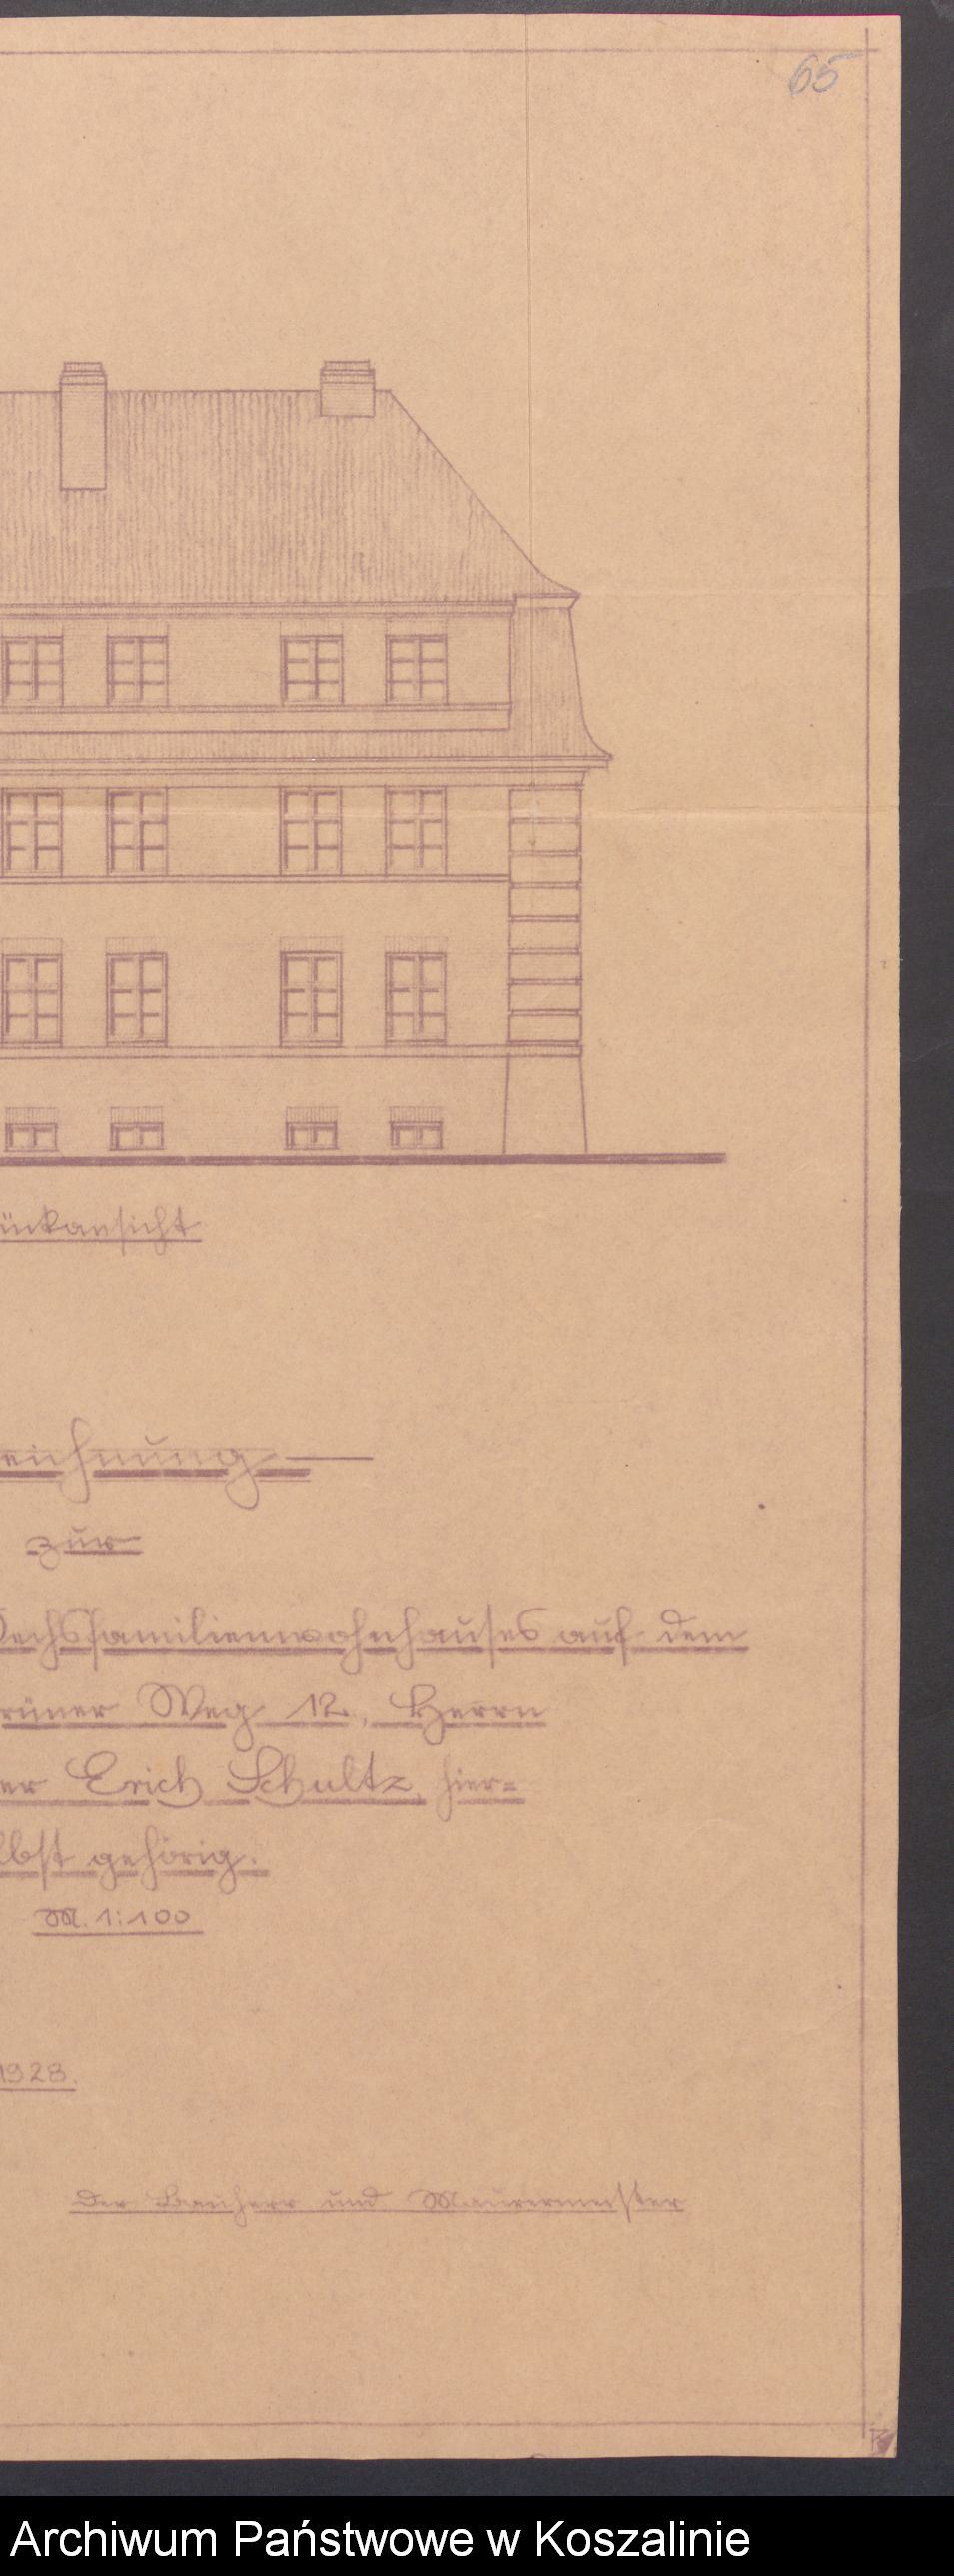 65
ückansicht
eichnung
zur
Sechsfamilienwohnhauses auf dem
rüner Weg 12, Herrn
er Erich Schultz, hier=
lbst gehörig.
M. 1:100
1928.
Der Bauherr und Maurermeister
Archiwum Państwowe w Koszalinie